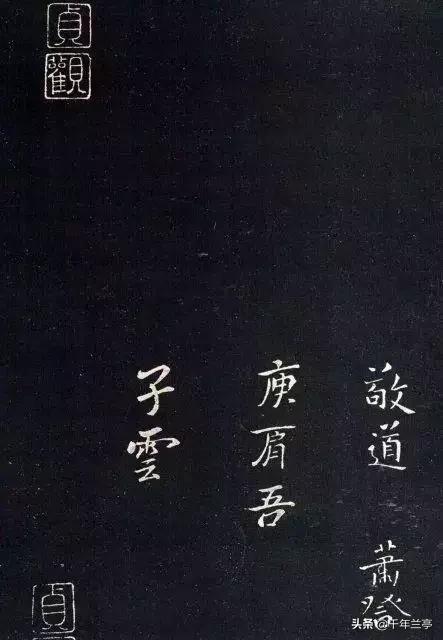 敬道 蕭
庾肩吾
子雲
貞
觀
貞
头条 @千年兰亭